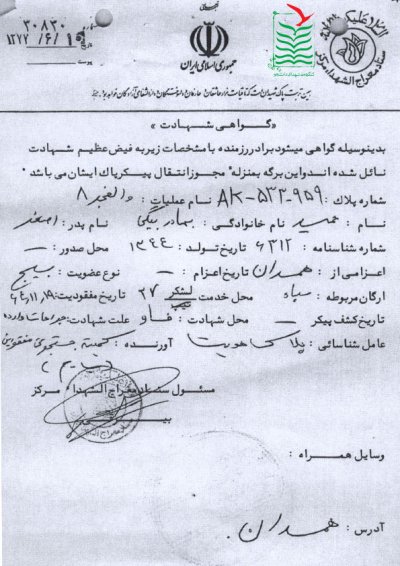 ۳۰۸۳۰
۱۳۷۷/۶/۱۵
جمهوری اسلامی ایران
ستاد معراج الشهداء مرکز
« گـواهی شـهادت »
بدینوسیله گواهی میشود برادر رزمنده با مشخصات زیر به فیض عظیم شهادت
نائل شده اند و این برگه بمنزله مجوز انتقال پیکر پاک ایشان می باشد
شماره پلاک : AK-۵۳۲-۹۵۹ نام عملیات : والفجر ۸
نام : حمید نام خانوادگی : بهادربیگی نام پدر : اصغر
شماره شناسنامه : ۶۳۱۲ تاریخ تولد : ۱۳۴۴ محل صدور : —
اعزامی از : همدان تاریخ اعزام : — نوع عضویت : بسیج
ارگان مربوطه : سپاه محل خدمت لشکر تیپ ۲۷ تاریخ مفقودیت : ۶۴,۱۱,۱۹
تاریخ کشف پیکر — محل شهادت : فاو علت شهادت : جراحات وارده
عامل شناسائی : پلاک هویت آورنده : کمیته جستجوی مفقودین
مسئول ستاد معراج الشهداء مرکز
وسایل همراه :
آدرس : همدان .